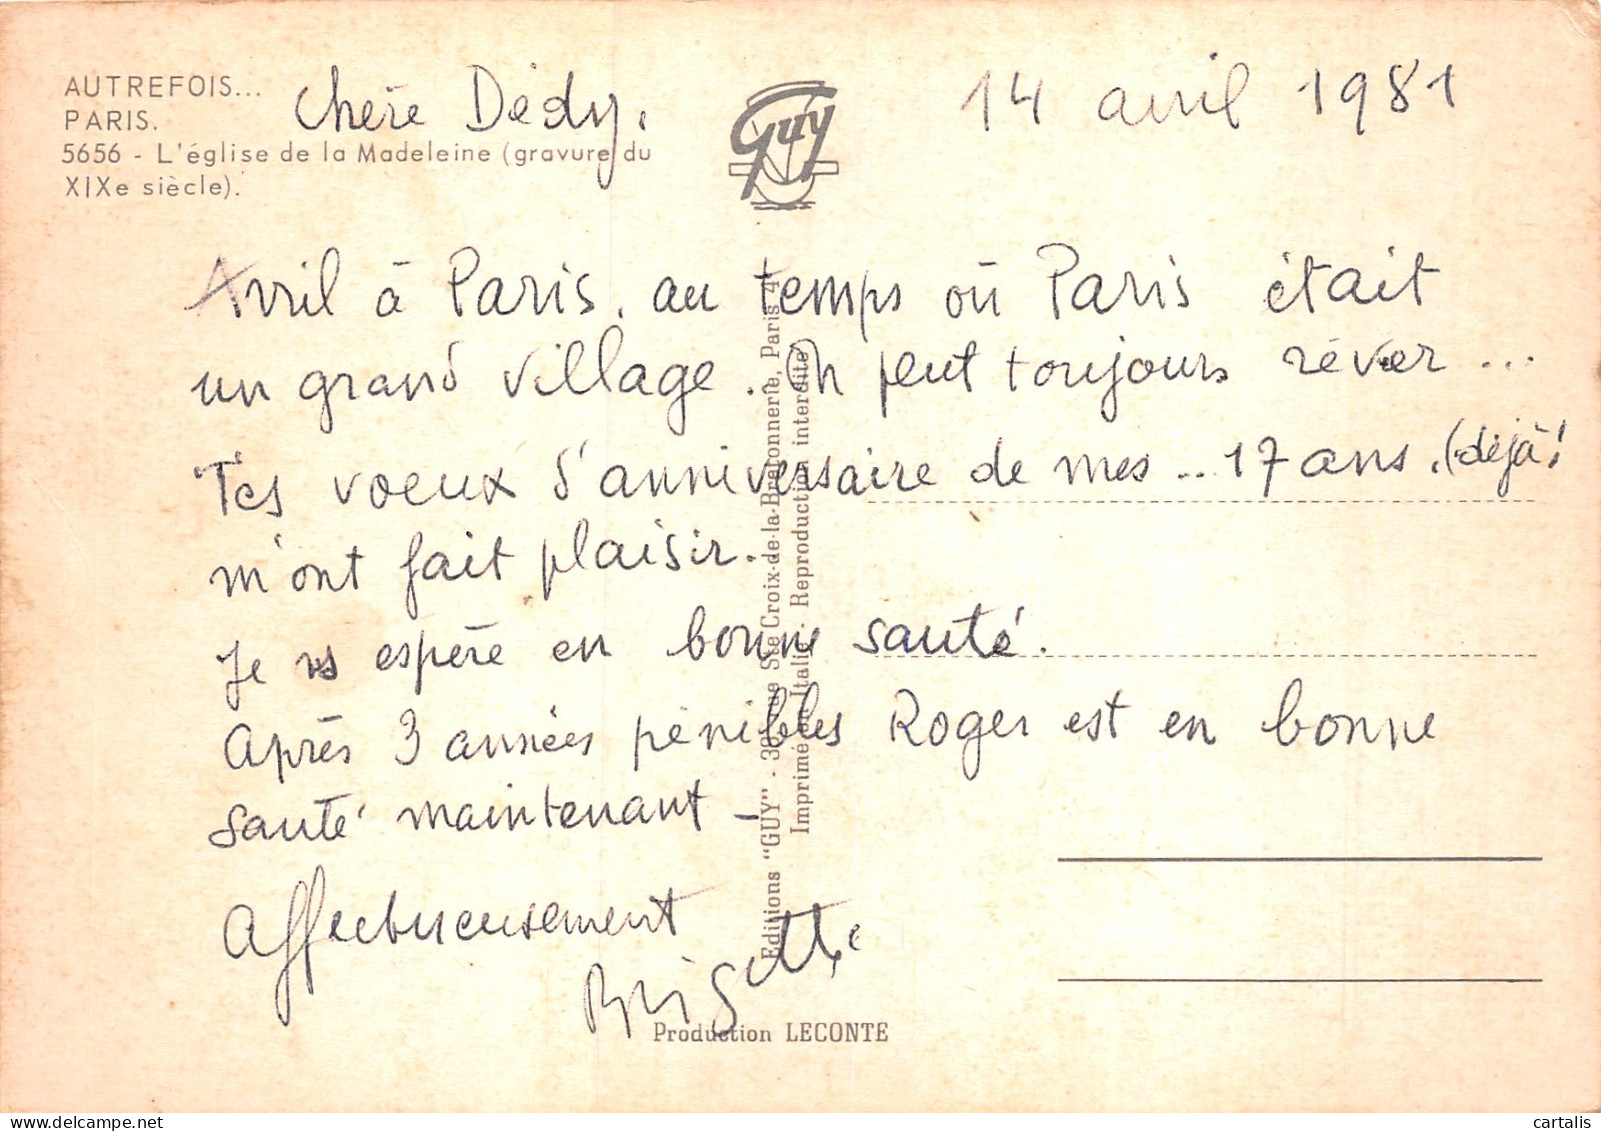 AUTREFOIS...
PARIS.
5656 - L'église de la Madeleine (gravure du
XIXe siècle).
Guy
Chère Dédy,
14 avril 1981
Avril à Paris, au temps où Paris était
un grand village. On peut toujours rêver...
Tes voeux d'anniversaire de mes... 17 ans, (déjà!
m'ont fait plaisir.
Je vs espère en bonne santé.
Après 3 années pénibles Roger est en bonne
santé maintenant -
Affectueusement
Brigitte
Editions "GUY" - 30, rue Ste Croix-de-la-Bretonnerie, Paris 4e
Imprimé en Italie - Reproduction interdite
Production LECONTE
https://www.delcampe.net
cartalis